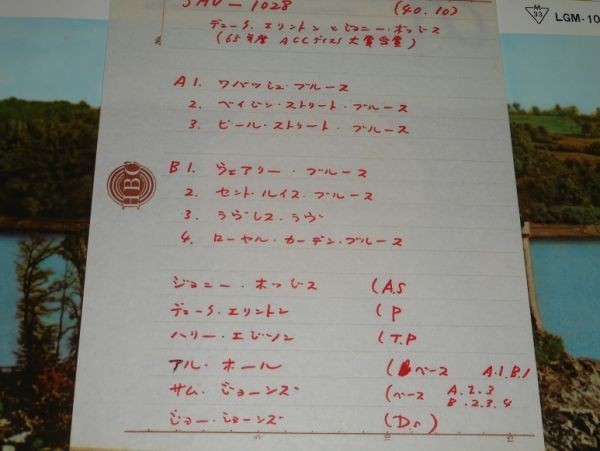 SMV-1028 (40.10)
デューク・エリントンとジョニー・ホッジス
(65年度 ACCディスク大賞受賞)
A 1. ワバッシュ・ブルース
2. ベイジン・ストリート・ブルース
3. ビール・ストリート・ブルース
B 1. ウェアリー・ブルース
2. セント・ルイス・ブルース
3. ラヴレス・ラヴ
4. ローヤル・ガーデン・ブルース
ジョニー・ホッジス (A.S
デューク・エリントン (P
ハリー・エジソン (T.P
アル・ホール (ベース A.1.B.1
サム・ジョーンズ (ベース A.2.3
B.2.3.4
ジョー・ジョーンズ (D.s)
HBC
M
33
LGM-10
5
10
15